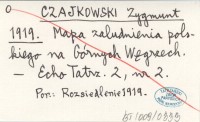 O CZAJKOWSKI Zygmunt
1919. Mapa zaludnienia pols-
kiego na Górnych Węgrzech.
— Echo Tatrz. 2, nr 2.
Por.: Rozsiedlenie 1919.